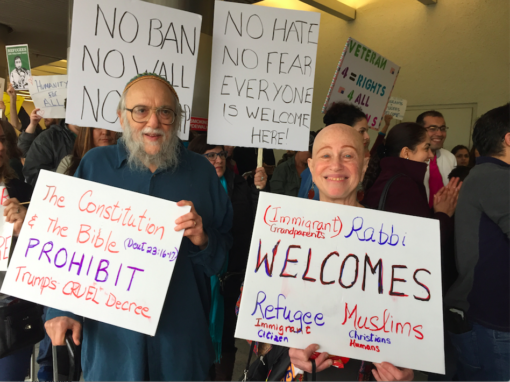 NO BAN
NO WALL
NO
NO HATE
NO FEAR
EVERYONE
IS WELCOME
HERE!
VETERAN
4 = RIGHTS
4 ALL
HUMANITY
ALL
The Constitution
& The Bible (Deut 23:16-17)
PROHIBIT
Trump's CRUEL Decree
(Immigrant) Rabbi
Grandparents
WELCOMES
Refugee
Immigrant
Citizen
Muslims
Christians
Humans